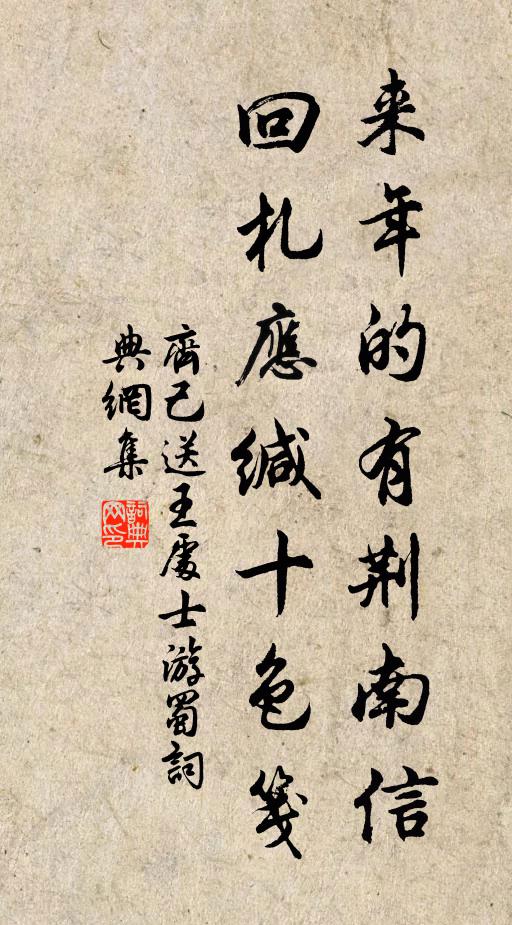 来年的有荆南信
回札應缄十色箋
齊己送王處士游蜀詞
典網集
詞典
网印